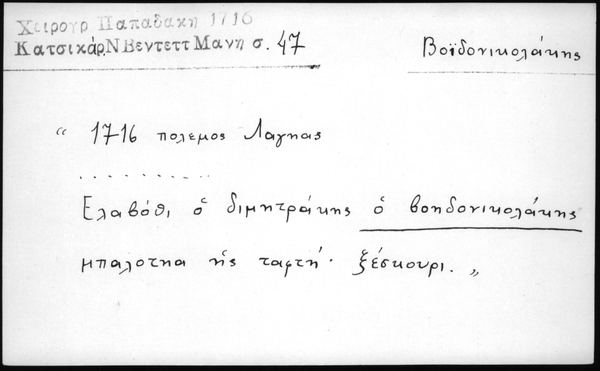 Χειρουρ Παπαδακη 1716
Κατσικάρ. Ν Βεντεττ Μανη σ. 47
Βοϊδονικολάκης
“ 1716 πολεμος Λαγηας
. . . . . . . . . .
Ελαβόθι ὁ διμητράκης ὁ βοηδονικολάκης
μπαλοτηα ἠς ταφτή· ξέσκουρι. „